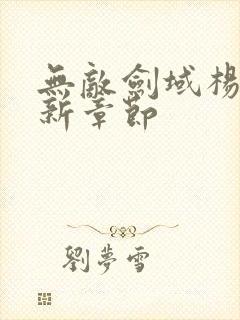 無敵劍域楊
新章節
劉夢雪